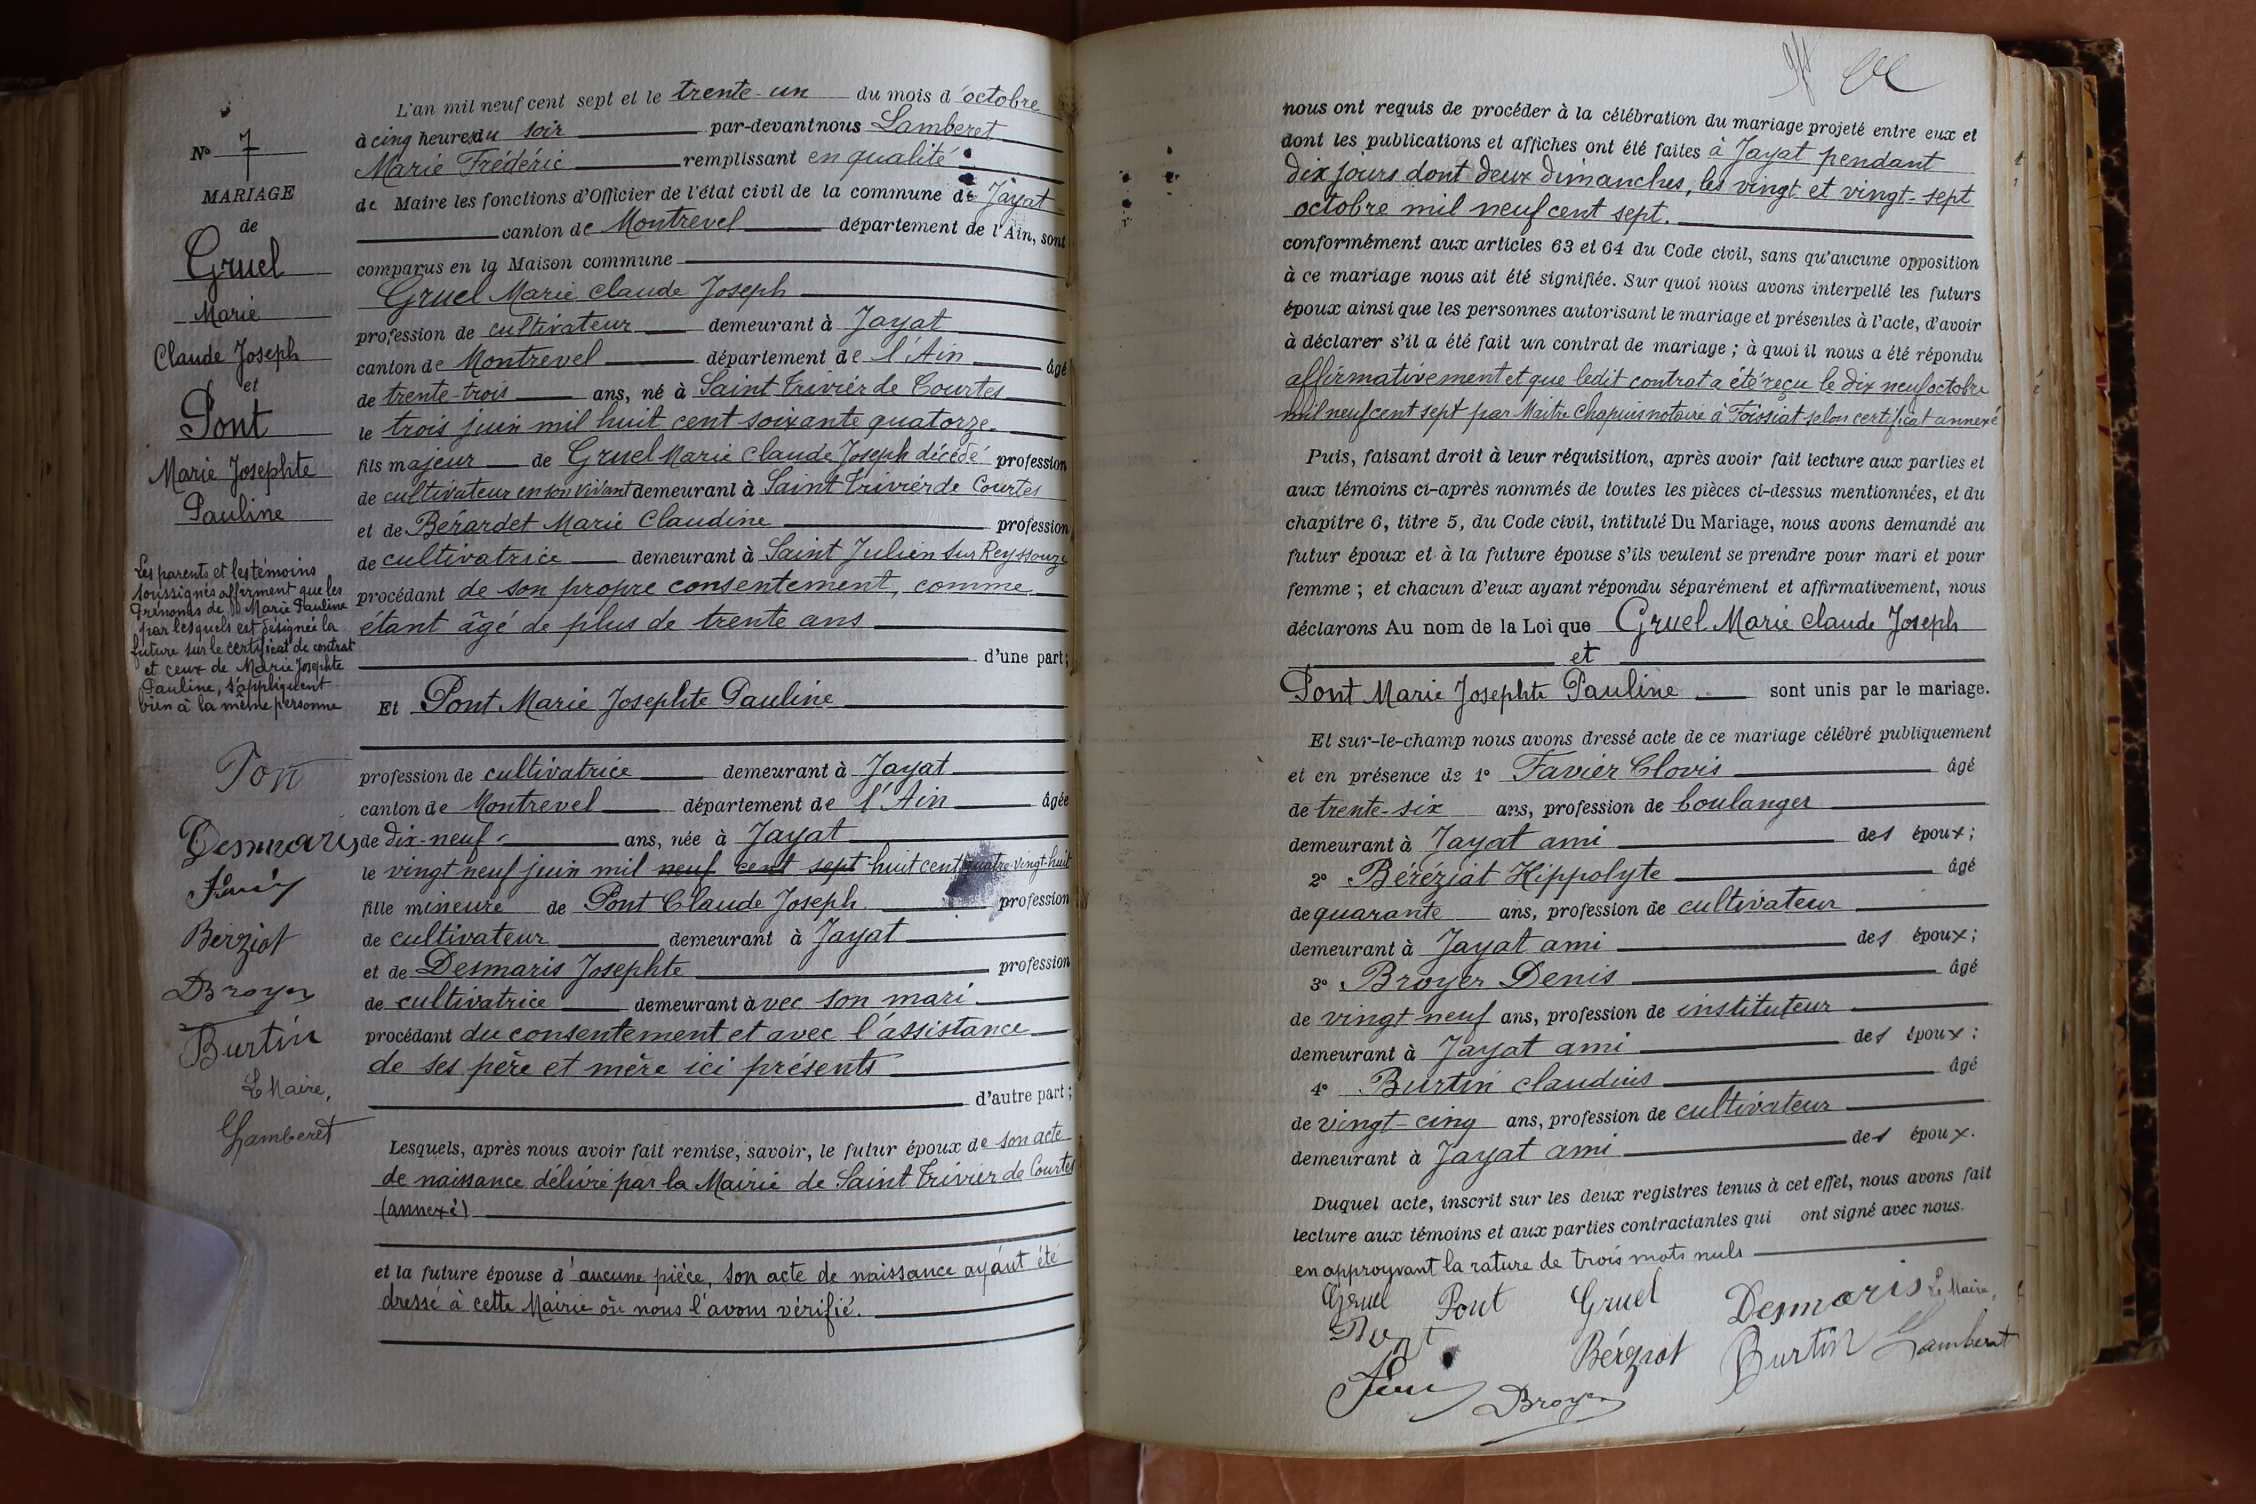 N° 7
MARIAGE
de
Gruel
Marie
Claude Joseph
et
Pont
Marie Josephte
Pauline
Les parents et les témoins
soussignés affirment que les
prénoms de Marie Pauline
par lesquels est désignée la
future sur le certificat de contrat
et ceux de Marie Josephte
Pauline, s'appliquent
bien à la même personne
Pon
Desmaris
Berziat
DBroyer
Burtin
Le Maire,
Lamberet
L'an mil neuf cent sept et le trente-un du mois d'octobre
à cinq heures du soir par-devant nous Lamberet
Marie Frédéric remplissant en qualité
de Maire les fonctions d'Officier de l'état civil de la commune de Jayat
canton de Montrevel département de l'Ain, sont
comparus en la Maison commune
Gruel Marie Claude Joseph
profession de cultivateur demeurant à Jayat
canton de Montrevel département de l'Ain âgé
de trente-trois ans, né à Saint Trivier de Courtes
le trois juin mil huit cent soixante quatorze
fils majeur de Gruel Marie Claude Joseph décédé profession
de cultivateur en son vivant demeurant à Saint Trivier de Courtes
et de Bérardet Marie Claudine profession
de cultivatrice demeurant à Saint Julien sur Reyssouze
procédant de son propre consentement, comme
étant âgé de plus de trente ans
d'une part;
Et Pont Marie Josephte Pauline
profession de cultivatrice demeurant à Jayat
canton de Montrevel département de l'Ain âgée
de dix-neuf ans, née à Jayat
le vingt neuf juin mil neuf cent sept huit cent quatre-vingt-huit
fille mineure de Pont Claude Joseph profession
de cultivateur demeurant à Jayat
et de Desmaris Josephte profession
de cultivatrice demeurant avec son mari
procédant du consentement et avec l'assistance
de ses père et mère ici présents
d'autre part;
Lesquels, après nous avoir fait remise, savoir, le futur époux de son acte
de naissance délivré par la Mairie de Saint Trivier de Courtes
(annexé)
et la future épouse d'aucune pièce, son acte de naissance ayant été
dressé à cette Mairie où nous l'avons vérifié.
nous ont requis de procéder à la célébration du mariage projeté entre eux et
dont les publications et affiches ont été faites à Jayat pendant
dix jours dont deux dimanches, les vingt et vingt-sept
octobre mil neuf cent sept.
conformément aux articles 63 et 64 du Code civil, sans qu'aucune opposition
à ce mariage nous ait été signifiée. Sur quoi nous avons interpellé les futurs
époux ainsi que les personnes autorisant le mariage et présentes à l'acte, d'avoir
à déclarer s'il a été fait un contrat de mariage; à quoi il nous a été répondu
affirmativement et que ledit contrat a été reçu le dix neuf octobre
mil neuf cent sept par Maître Chapuis notaire à Foissiat selon certificat annexé
Puis, faisant droit à leur réquisition, après avoir fait lecture aux parties et
aux témoins ci-après nommés de toutes les pièces ci-dessus mentionnées, et du
chapitre 6, titre 5, du Code civil, intitulé Du Mariage, nous avons demandé au
futur époux et à la future épouse s'ils veulent se prendre pour mari et pour
femme; et chacun d'eux ayant répondu séparément et affirmativement, nous
déclarons Au nom de la Loi que Gruel Marie Claude Joseph
et
Pont Marie Josephte Pauline sont unis par le mariage.
Et sur-le-champ nous avons dressé acte de ce mariage célébré publiquement
et en présence de 1° Favier Clovis âgé
de trente-six ans, profession de boulanger
demeurant à Jayat ami des époux;
2° Béréziat Hippolyte âgé
de quarante ans, profession de cultivateur
demeurant à Jayat ami des époux;
3° Broyer Denis âgé
de vingt neuf ans, profession de instituteur
demeurant à Jayat ami des époux;
4° Burtin Claudius âgé
de vingt-cinq ans, profession de cultivateur
demeurant à Jayat ami des époux.
Duquel acte, inscrit sur les deux registres tenus à cet effet, nous avons fait
lecture aux témoins et aux parties contractantes qui ont signé avec nous.
en approuvant la rature de trois mots nuls
Gruel Pont Gruel Desmaris Le Maire,
Pont Bérziat Burtin Lamberet
DBroyer